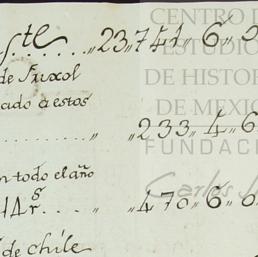 ste ..... ,, 23,741,, 6,, 0
de Fruxol
cado a estos
..... ,, ,, 233,, 4,, 6
n todo el año
14 rs .... ,, ,, 470,, 6,, 0
de chile
CENTRO D
ESTUDIO
DE HISTOR
DE MEXIC
FUNDACI
Carlos